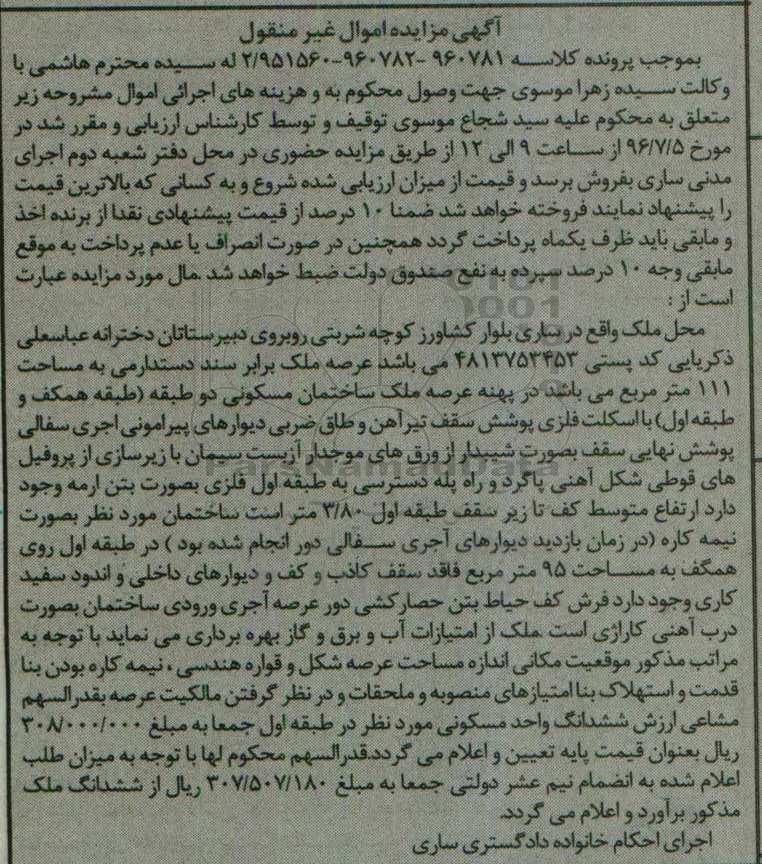 آگهی مزایده اموال غیر منقول
بموجب پرونده کلاسه ۹۶۰۷۸۱ -۹۶۰۷۸۲-۲/۹۵۱۵۶۰ له سیده محترم هاشمی با
وکالت سیده زهرا موسوی جهت وصول محکوم به و هزینه های اجرائی اموال مشروحه زیر
متعلق به محکوم علیه سید شجاع موسوی توقیف و توسط کارشناس ارزیابی و مقرر شد در
مورخ ۹۶/۷/۵ از ساعت ۹ الی ۱۲ از طریق مزایده حضوری در محل دفتر شعبه دوم اجرای
مدنی ساری بفروش برسد و قیمت از میزان ارزیابی شده شروع و به کسانی که بالاترین قیمت
را پیشنهاد نمایند فروخته خواهد شد ضمنا ۱۰ درصد از قیمت پیشنهادی نقدا از برنده اخذ
و مابقی باید ظرف یکماه پرداخت گردد همچنین در صورت انصراف یا عدم پرداخت به موقع
مابقی وجه ۱۰ درصد سپرده به نفع صندوق دولت ضبط خواهد شد .مال مورد مزایده عبارت
است از :
محل ملک واقع در ساری بلوار کشاورز کوچه شربتی روبروی دبیرستاتان دخترانه عباسعلی
ذکریایی کد پستی ۴۸۱۳۷۵۳۴۵۳ می باشد عرصه ملک برابر سند دستدارمی به مساحت
۱۱۱ متر مربع می باشد در پهنه عرصه ملک ساختمان مسکونی دو طبقه (طبقه همکف و
طبقه اول) با اسکلت فلزی پوشش سقف تیرآهن و طاق ضربی دیوارهای پیرامونی اجری سفالی
پوشش نهایی سقف بصورت شیبدار از ورق های موجدار آزبست سیمان با زیرسازی از پروفیل
های قوطی شکل آهنی پاگرد و راه پله دسترسی به طبقه اول فلزی بصورت بتن ارمه وجود
دارد ارتفاع متوسط کف تا زیر سقف طبقه اول ۳/۸۰ متر است ساختمان مورد نظر بصورت
نیمه کاره (در زمان بازدید دیوارهای آجری سفالی دور انجام شده بود ) در طبقه اول روی
همگف به مساحت ۹۵ متر مربع فاقد سقف کاذب و کف و دیوارهای داخلی و اندود سفید
کاری وجود دارد فرش کف حیاط بتن حصارکشی دور عرصه آجری ورودی ساختمان بصورت
درب آهنی کاراژی است .ملک از امتیازات آب و برق و گاز بهره برداری می نماید با توجه به
مراتب مذکور موقعیت مکانی اندازه مساحت عرصه شکل و قواره هندسی ، نیمه کاره بودن بنا
قدمت و استهلاک بنا امتیازهای منصوبه و ملحقات و در نظر گرفتن مالکیت عرصه بقدرالسهم
مشاعی ارزش ششدانگ واحد مسکونی مورد نظر در طبقه اول جمعا به مبلغ ۳۰۸/۰۰۰/۰۰۰
ریال بعنوان قیمت پایه تعیین و اعلام می گردد.قدرالسهم محکوم لها با توجه به میزان طلب
اعلام شده به انضمام نیم عشر دولتی جمعا به مبلغ ۳۰۷/۵۰۷/۱۸۰ ریال از ششدانگ ملک
مذکور برآورد و اعلام می گردد.
اجرای احکام خانواده دادگستری ساری
ParsNamadData